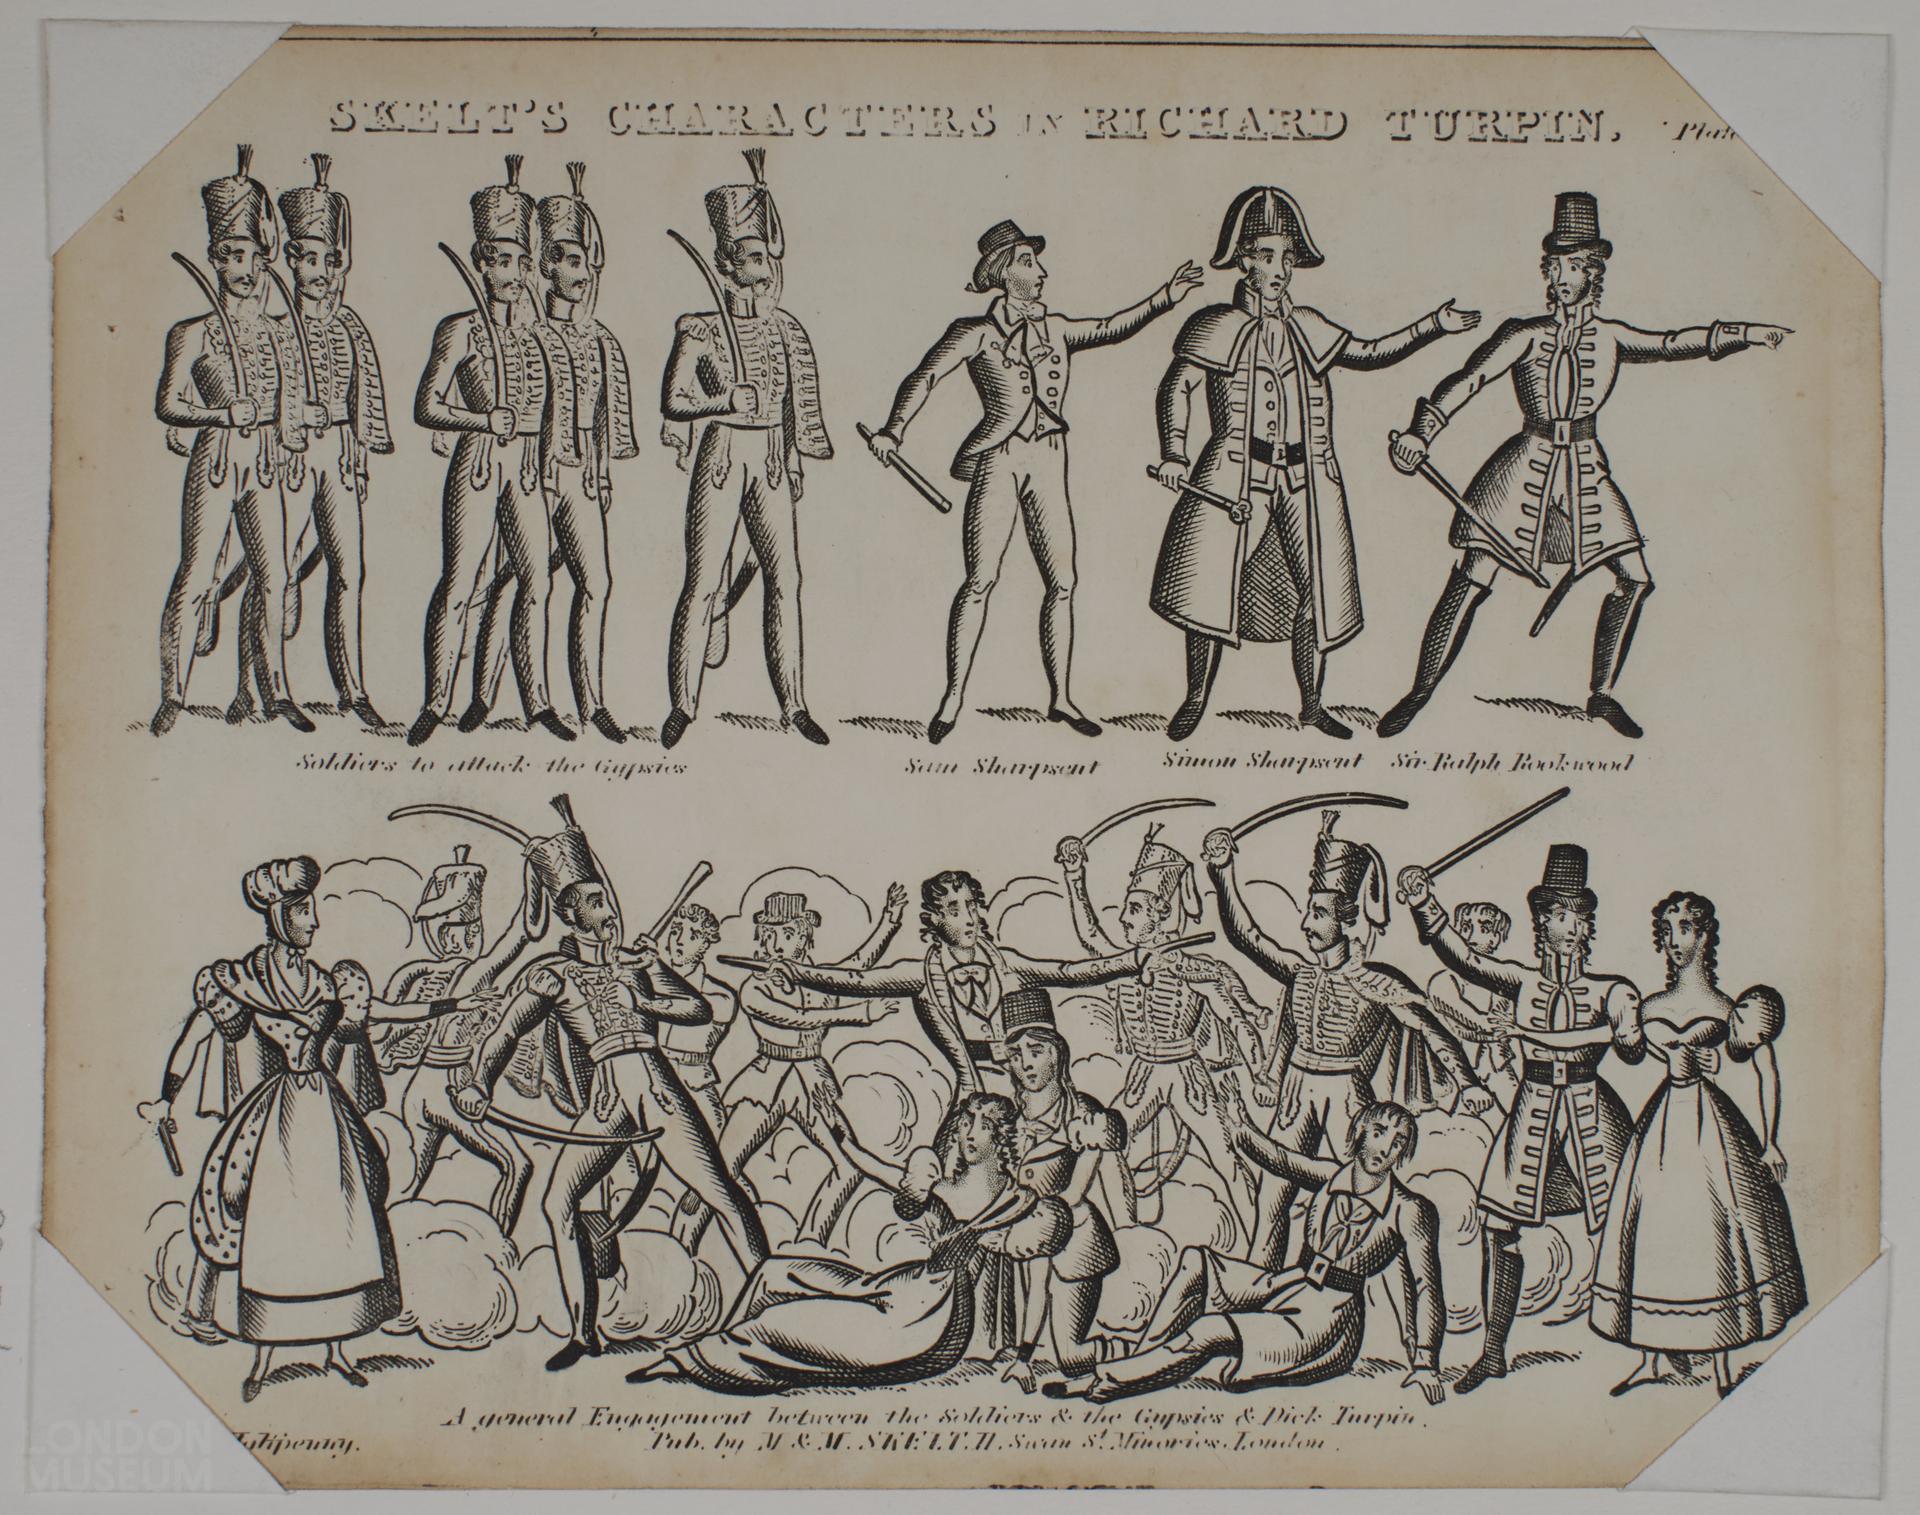 SKELT'S CHARACTERS IN RICHARD TURPIN.
Soldiers to attack the Gypsies
Sam Sharpsent
Simon Sharpsent
Sir Ralph Rookwood
A general Engagement between the Soldiers & the Gypsies & Dick Turpin.
Pub. by M & M. SKELT. 11. Swan St. Minories. London.
LONDON
MUSEUM